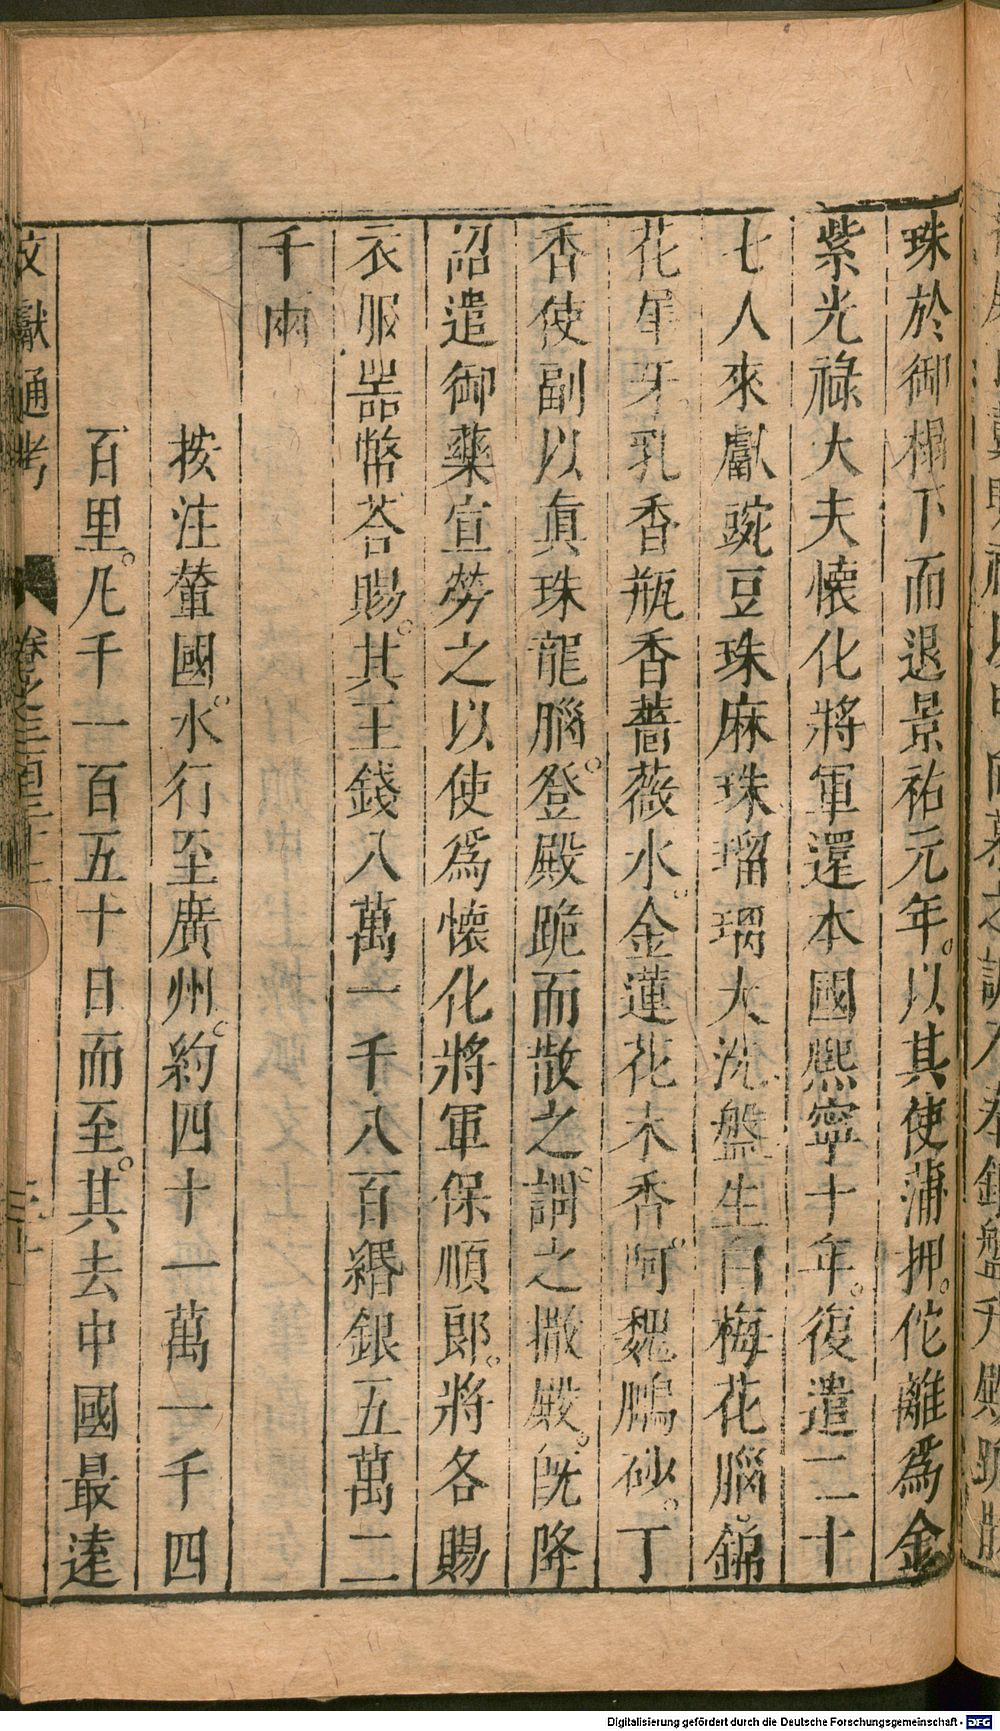 珠於御榻下而退景祐元年。以其使蒲押。佗離爲金
紫光祿大夫懷化將軍還本國熙寧十年。復遣二十
七人來獻豌豆珠麻珠瑠璃大洗盤生白梅花腦。錦
花犀牙。乳香瓶香薔薇水。金蓮花木香。阿魏鵬砂。丁
香使副以眞珠龍腦。登殿跪而散之。謂之撒殿。旣降
詔遣御藥宣勞之以使爲懷化將軍保順郎。將各賜
衣服器幣荅賜。其王錢八萬一千八百緡銀五萬二
千兩
按注輦國。水行至廣州。約四十一萬一千四
百里。凡千一百五十日而至。其去中國最遠
文獻通考 卷之三百三十二
Digitalisierung gefördert durch die Deutsche Forschungsgemeinschaft - DFG